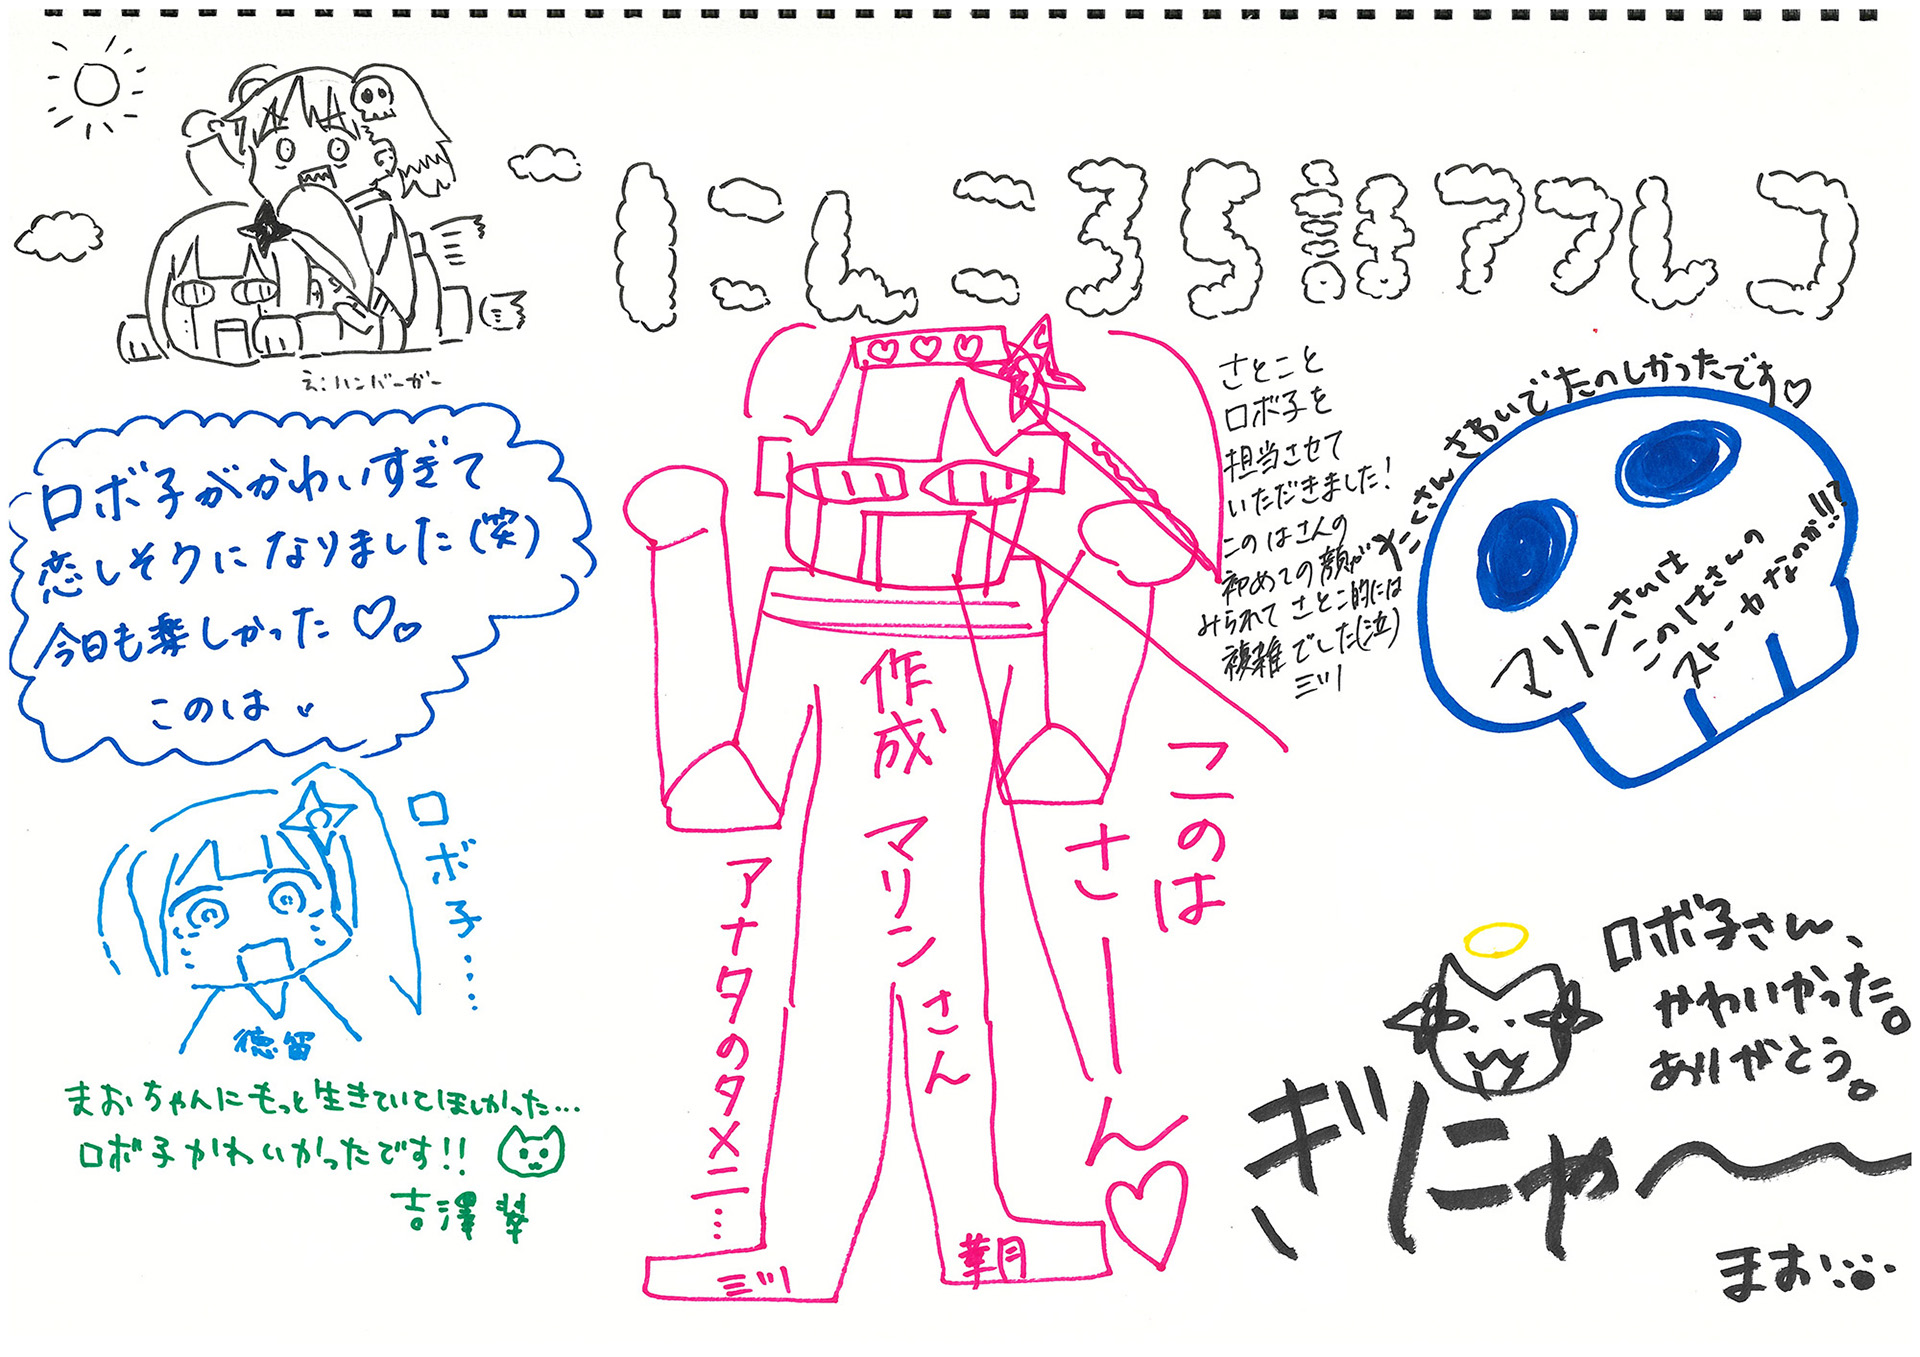 にんころ5話アフレコ
え:ハンバーガー
ロボ子がかわいすぎて
恋しそうになりました(笑)
今日も楽しかった♡♡
このは
さとこと
ロボ子を
担当させて
いただきました!
このはさんの
初めての顔が
みられてさとこ的には
複雑でした(泣)
三川
たくさんさわいでたのしかったです♡
マリンさんは
このはさんの
ストーカーなのか!!?
作成 マリンさん
アナタのタメニ…
このは
さーーん♡
三川
ロボ子….
徳留
まおちゃんにもっと生きていてほしかった…
ロボ子かわいかったです!!
吉澤 翠
ロボ子さん、
かわいかった。
ありがとう。
ぎりにゃ〜
まお